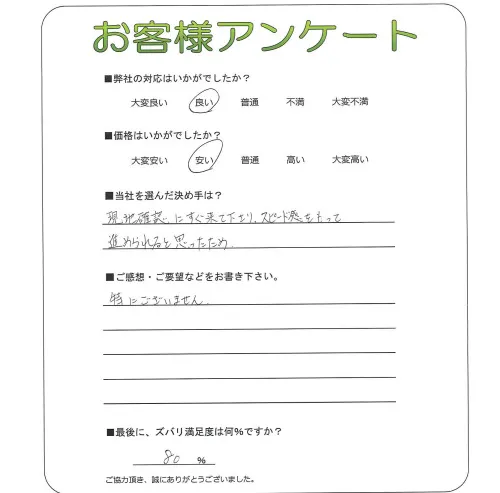 お客様アンケート
■弊社の対応はいかがでしたか?
大変良い 良い 普通 不満 大変不満
■価格はいかがでしたか?
大変安い 安い 普通 高い 大変高い
■当社を選んだ決め手は?
現地確認にすぐ来て下さり、スピード感をもって
進められると思ったため
■ご感想・ご要望などをお書き下さい。
特にございません。
■最後に、ズバリ満足度は何%ですか?
80 %
ご協力頂き、誠にありがとうございました。